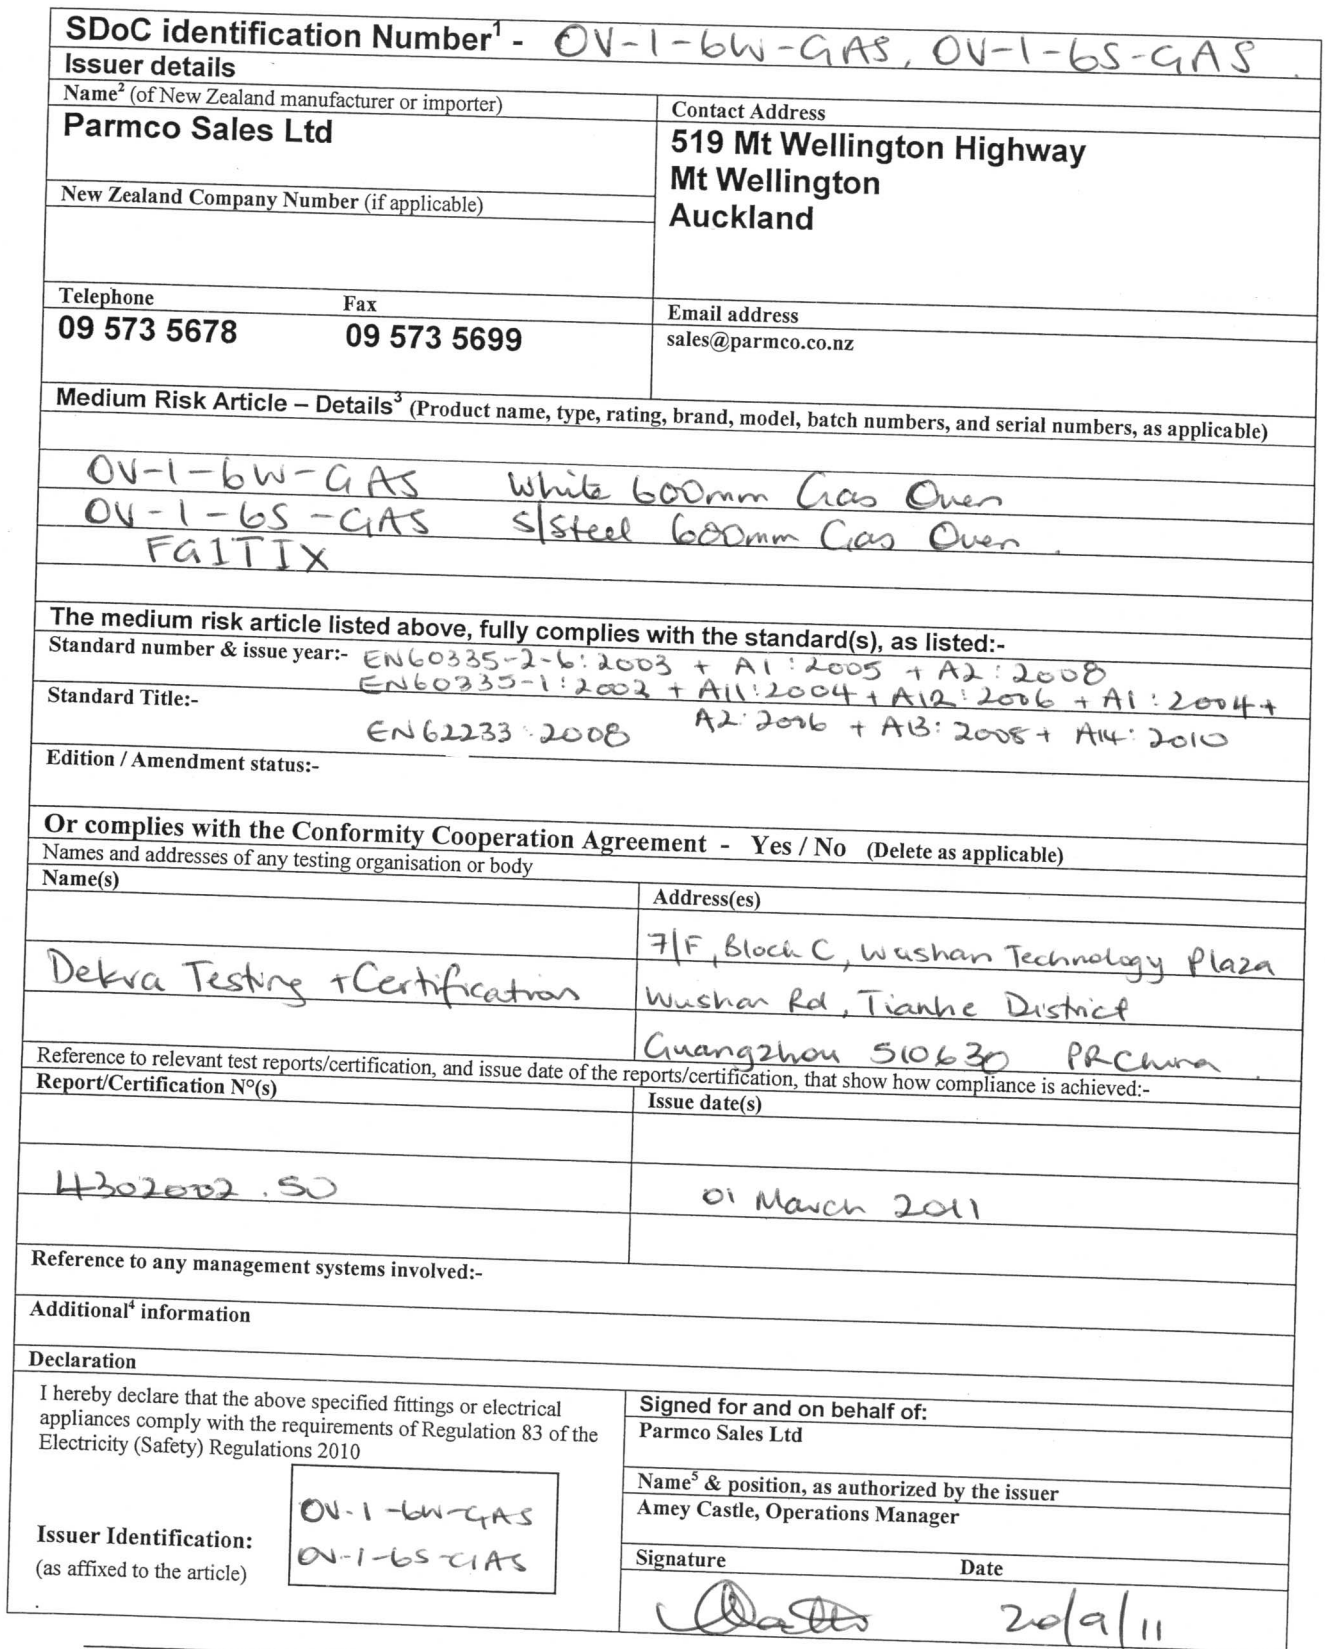 SDoC identification Number¹ - OV-1-6W-GAS, OV-1-6S-GAS.
Issuer details
Name² (of New Zealand manufacturer or importer)
Parmco Sales Ltd
Contact Address
519 Mt Wellington Highway
Mt Wellington
Auckland
New Zealand Company Number (if applicable)
Telephone Fax
09 573 5678 09 573 5699
Email address
sales@parmco.co.nz
Medium Risk Article – Details³ (Product name, type, rating, brand, model, batch numbers, and serial numbers, as applicable)
OV-1-6W-GAS White 600mm Gas Oven
OV-1-6S-GAS S/Steel 600mm Gas Oven.
FGITIX
The medium risk article listed above, fully complies with the standard(s), as listed:-
Standard number & issue year:- EN60335-2-6:2003 + A1:2005 + A2:2008
EN60335-1:2002 + A11:2004 + A12:2006 + A1:2004+
Standard Title:-
A2:2006 + A13:2008+ A14:2010
EN62233:2008
Edition / Amendment status:-
Or complies with the Conformity Cooperation Agreement - Yes / No (Delete as applicable)
Names and addresses of any testing organisation or body
Name(s)
Address(es)
Dekra Testing +Certification
7/F, Block C, Wushan Technology Plaza
Wushan Rd, Tianhe District
Guangzhou 510630 PR China.
Reference to relevant test reports/certification, and issue date of the reports/certification, that show how compliance is achieved:-
Report/Certification N°(s)
Issue date(s)
4302002.50
01 March 2011
Reference to any management systems involved:-
Additional⁴ information
Declaration
I hereby declare that the above specified fittings or electrical
appliances comply with the requirements of Regulation 83 of the
Electricity (Safety) Regulations 2010
Issuer Identification:
(as affixed to the article)
OV-1-6W-GAS
OV-1-6S-GAS
Signed for and on behalf of:
Parmco Sales Ltd
Name⁵ & position, as authorized by the issuer
Amey Castle, Operations Manager
Signature Date
20/9/11